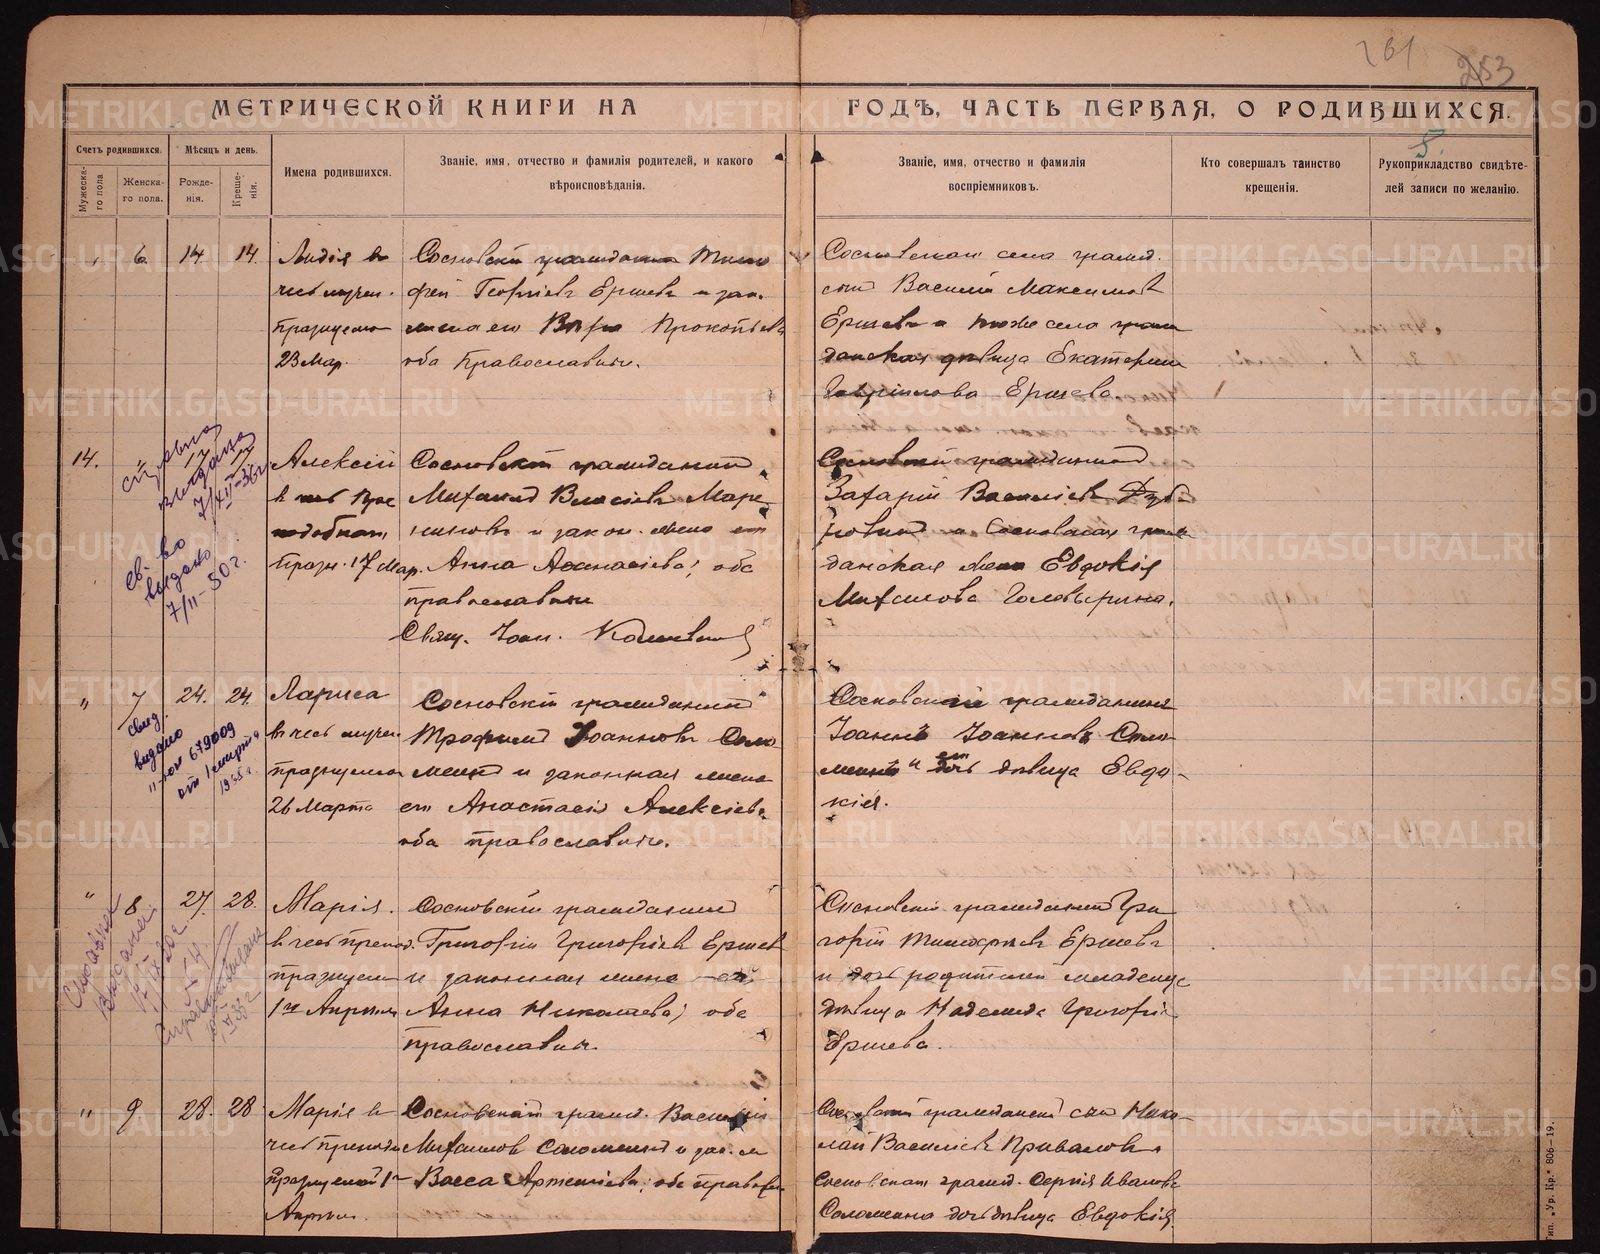 261
253
МЕТРИЧЕСКОЙ КНИГИ НА ГОДЪ, ЧАСТЬ ПЕРВАЯ, О РОДИВШИХСЯ.
5.
Счетъ родившихся.
Мужеска-
го пола
Женска-
го пола.
Мѣсяцъ и день.
Рожде-
нія.
Креще-
нія.
Имена родившихся.
Званіе, имя, отчество и фамилія родителей, и какого
вѣроисповѣданія.
Званіе, имя, отчество и фамилія
воспріемниковъ.
Кто совершалъ таинство
крещенія.
Рукоприкладство свидѣте-
лей записи по желанію.
6 14 14.
Лидія въ
честь мучен.
празнуемо
23 Мар.
Сосновскій гражданинъ Тимо
фей Георгіевъ Ершевъ и зак.
жена его Вѣра Прокопьева
оба Православные.
Сосновскаго села гражд.
сынъ Василій Максимов
Ершевъ и тоже села граж
данская дѣвица Екатерина
Гавріилова Ершева.
14. " 17 17
Алексій
в честь Преп
подобнаго
празн. 17 Мар.
Сосновскій гражданинъ
Михаилъ Власіевъ Маре
ниновъ и закон. жена его
Анна Аѳанасіева; оба
православные
Свящ. Іоан.
Сосновскій гражданинъ
Захарій Василіевъ
и Сосновская граж
данская жена Евдокія
Михаилова Головырина.
справка
выдана
7/XII-36г
св-во
выдано
7/II-50 г.
" 7 24. 24.
Лариса
въ честь мучен
празнуемо
26 Марта
Сосновскій гражданинъ
Трофимъ Іоанновъ Соло
меинъ и законная жена
его Анастасія Алексіева
оба православные.
Сосновскій гражданинъ
Іоаннъ Іоанновъ Соло-
меинъ и его дочь дѣвица Евдо-
кія.
свид.
выдано
679009
от 1 марта
1955 г.
" 8 27. 28.
Марія.
в честь препод.
празнуем
1го Апрѣля
Сосновскій гражданинъ
Григорій Григоріевъ Ершевъ
и законная жена его
Анна Николаева; оба
Православные.
Сосновскій гражданинъ Гри
горій Тимофѣевъ Ершевъ
и дочь родителей младенца
дѣвица Надежда Григоріе
Ершева.
Справка
Выдана
" 9 28. 28
Марія въ
честь препод
Празнуемой 1го
Апрѣля.
Сосновскій гражд. Василій
Михаиловъ Соломеинъ и зак. ж
Васса Артеміева; оба правосл
Сосновскій гражданский сын Нико-
лай Василіевъ Приваловъ
Сосновскаго гражд. Сергія Иванова
Соломеина дочь дѣвица Евдокія.
Тип. „Ур. Кр." 806—19.
METRIKI.GASO-URAL.RU